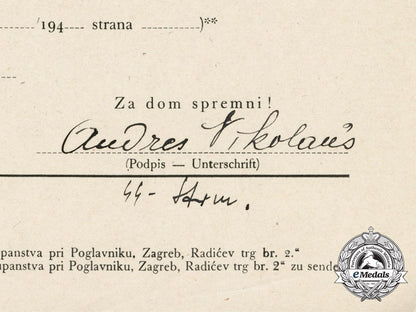 /194 strana )**
Za dom spremni!
Andres Nikolaus
(Podpis — Unterschrift)
SS- Strm.
upanstva pri Poglavniku, Zagreb, Radićev trg br. 2."
upanstva pri Poglavniku, Zagreb, Radićev trg br. 2" zu sende
eMedals